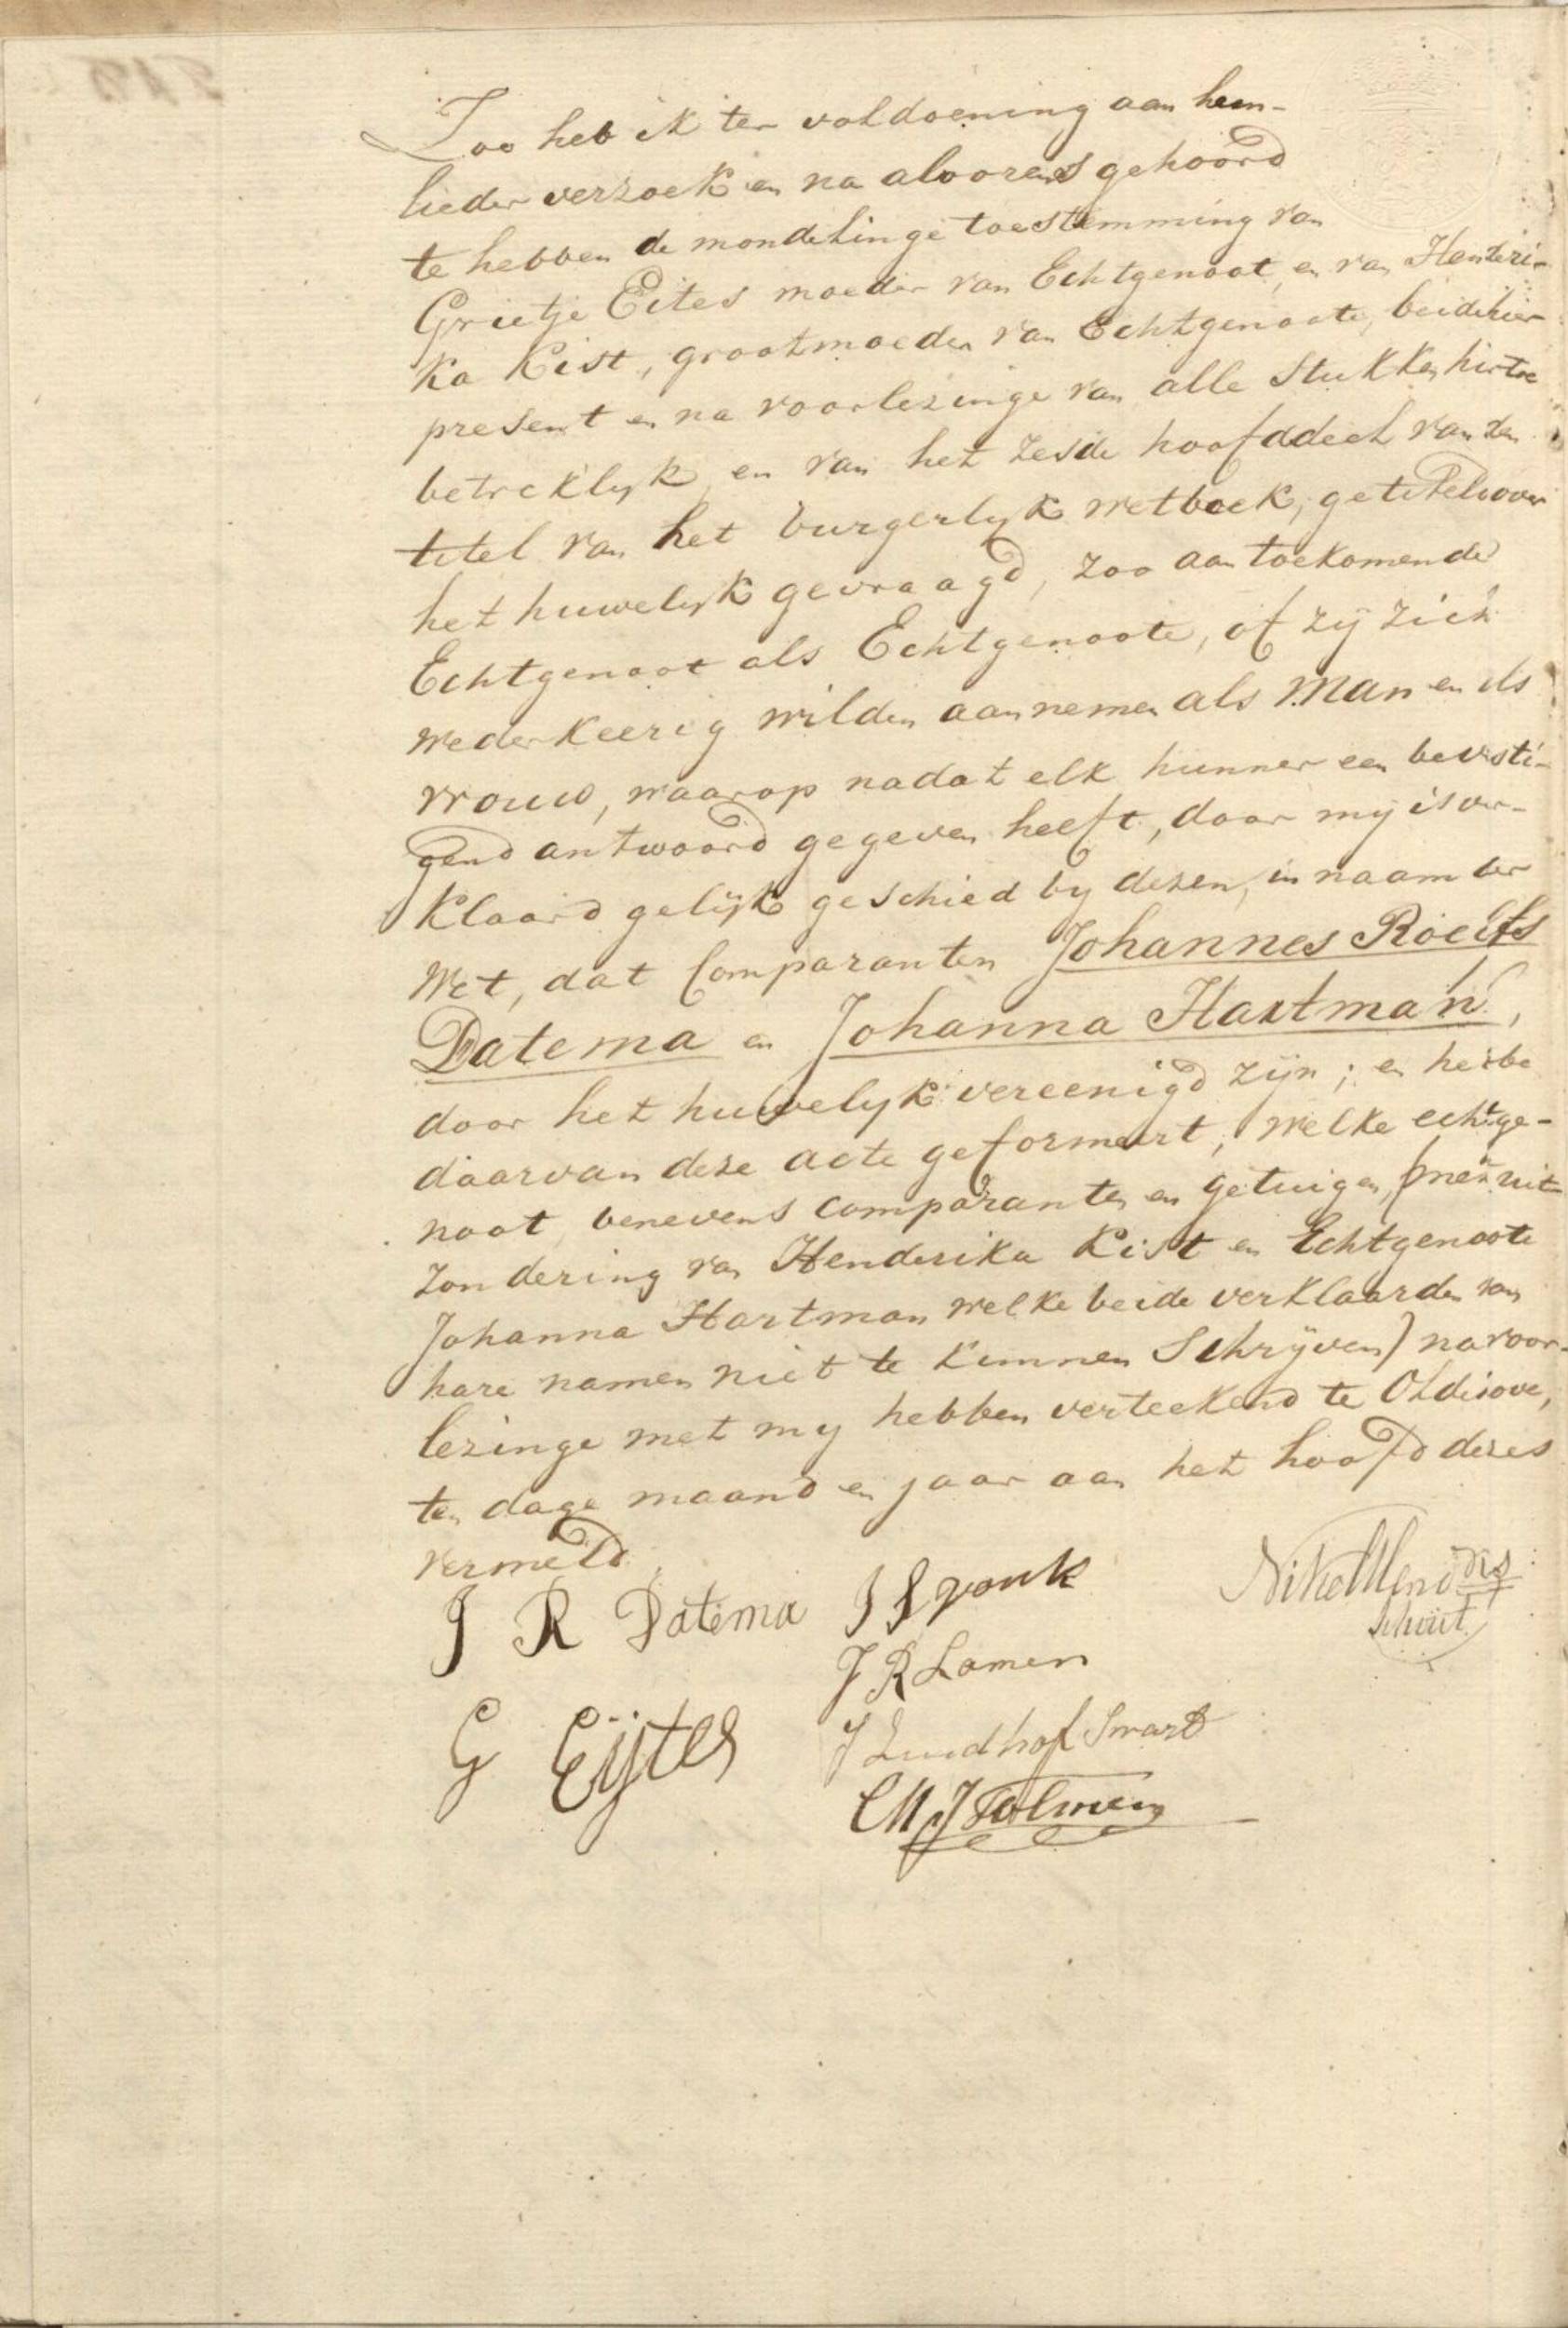 Zoo heb ik ter voldoening aan hun-
lieder verzoek en na alvoorens gehoord
te hebben de mondelinge toestemming van
Grietje Eites moeder van Echtgenoot, en van Henderi-
ka Kist, grootmoeder van Echtgenoote, beide hier
present en na voorlezinge van alle stukken hiertoe
betreklyk en van het zesde hoofddeel van den
titel van het burgerlyk wetboek, getiteld over
het huwelyk gevraagd, zoo aan toekomende
Echtgenoot als Echtgenoote, of zij zich
wederkeerig wilden aannemen als Man en als
vrouw, waarop nadat elk hunner een bevesti-
gend antwoord gegeven heeft, door mij is ver-
klaard gelijk geschied by dezen, in naam der
Wet, dat Comparanten Johannes Roelfs
Datema en Johanna Hartman,
door het huwelyk vereenigd zijn; en heb
daarvan deze acte geformeert, welke echtge-
noot, benevens comparanten en getuigen, (met uit-
zondering van Henderika Kist en Echtgenoote
Johanna Hartman welke beide verklaarden van
hare namen niet te kunnen Schrijven) na voor-
lezinge met my hebben verteekend te Oldehove,
ten dage maand en jaar aan het hoofd dezes
vermeld.
J R Datema J S vonk
schout
J R Lamen
G Eijtes